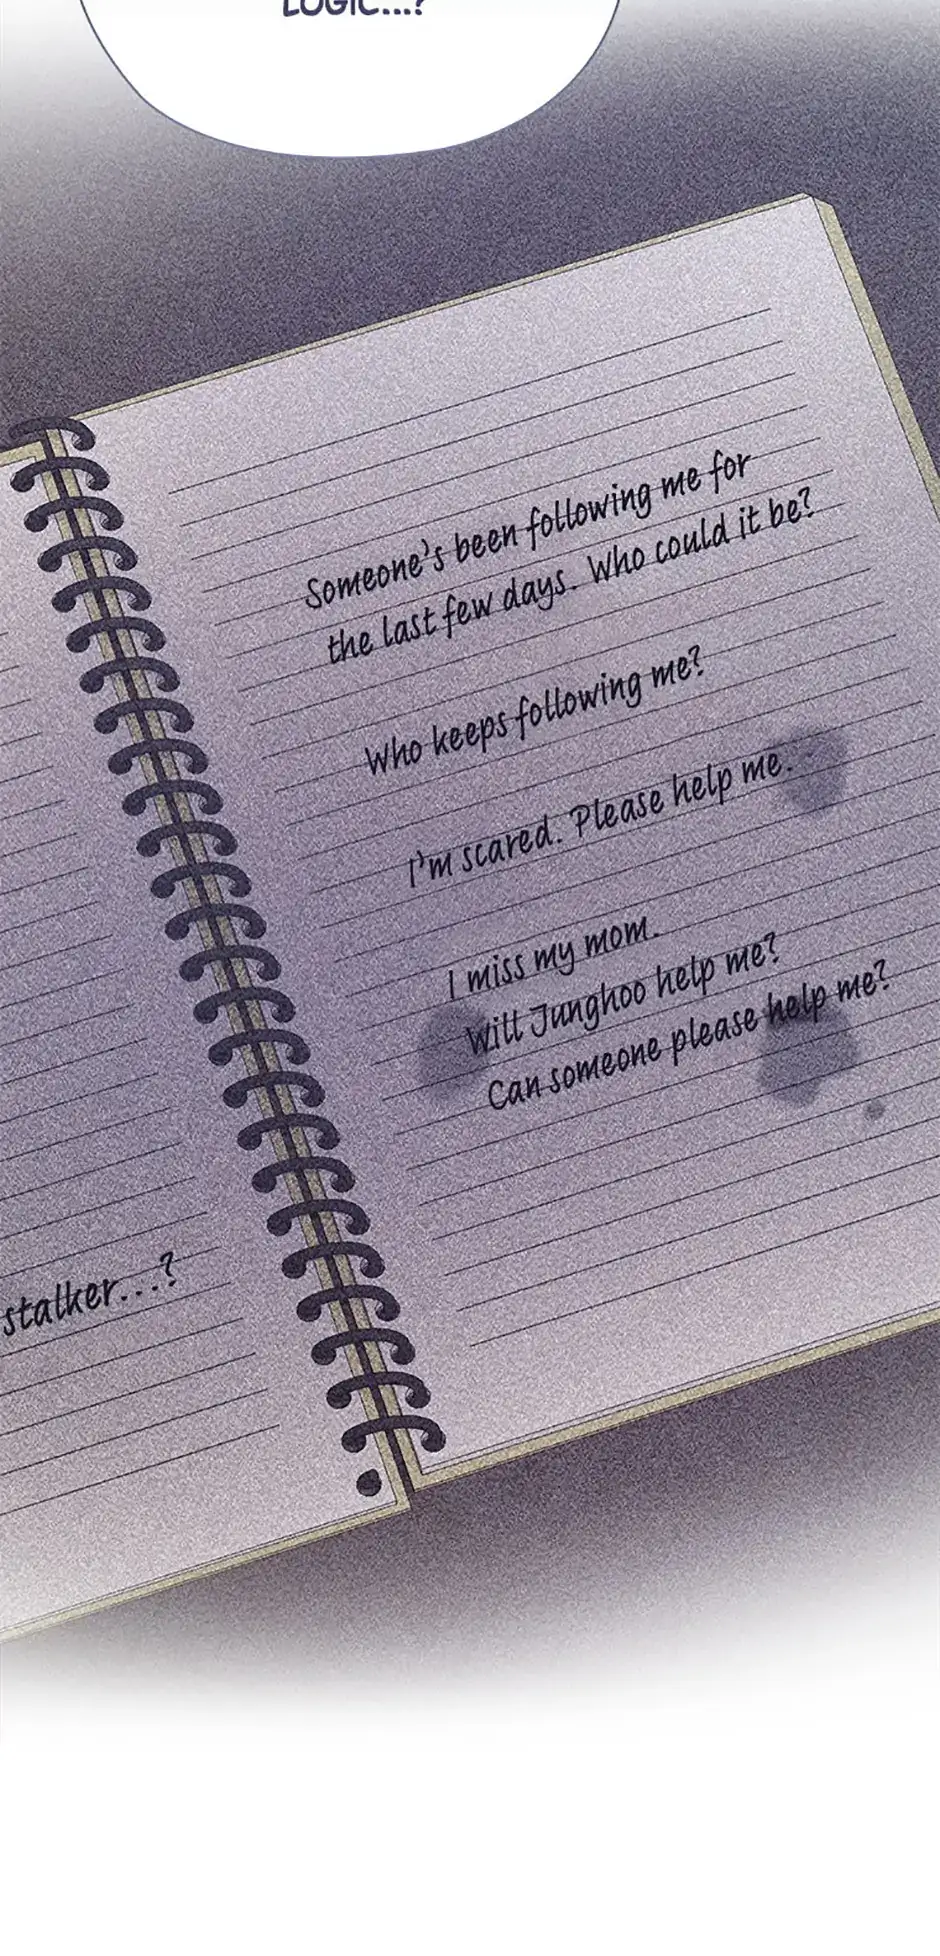 LOGIC...?
Someone's been following me for
the last few days. Who could it be?
Who keeps following me?
I'm scared. Please help me.
I miss my mom.
Will Junghoo help me?
Can someone please help me?
stalker...?